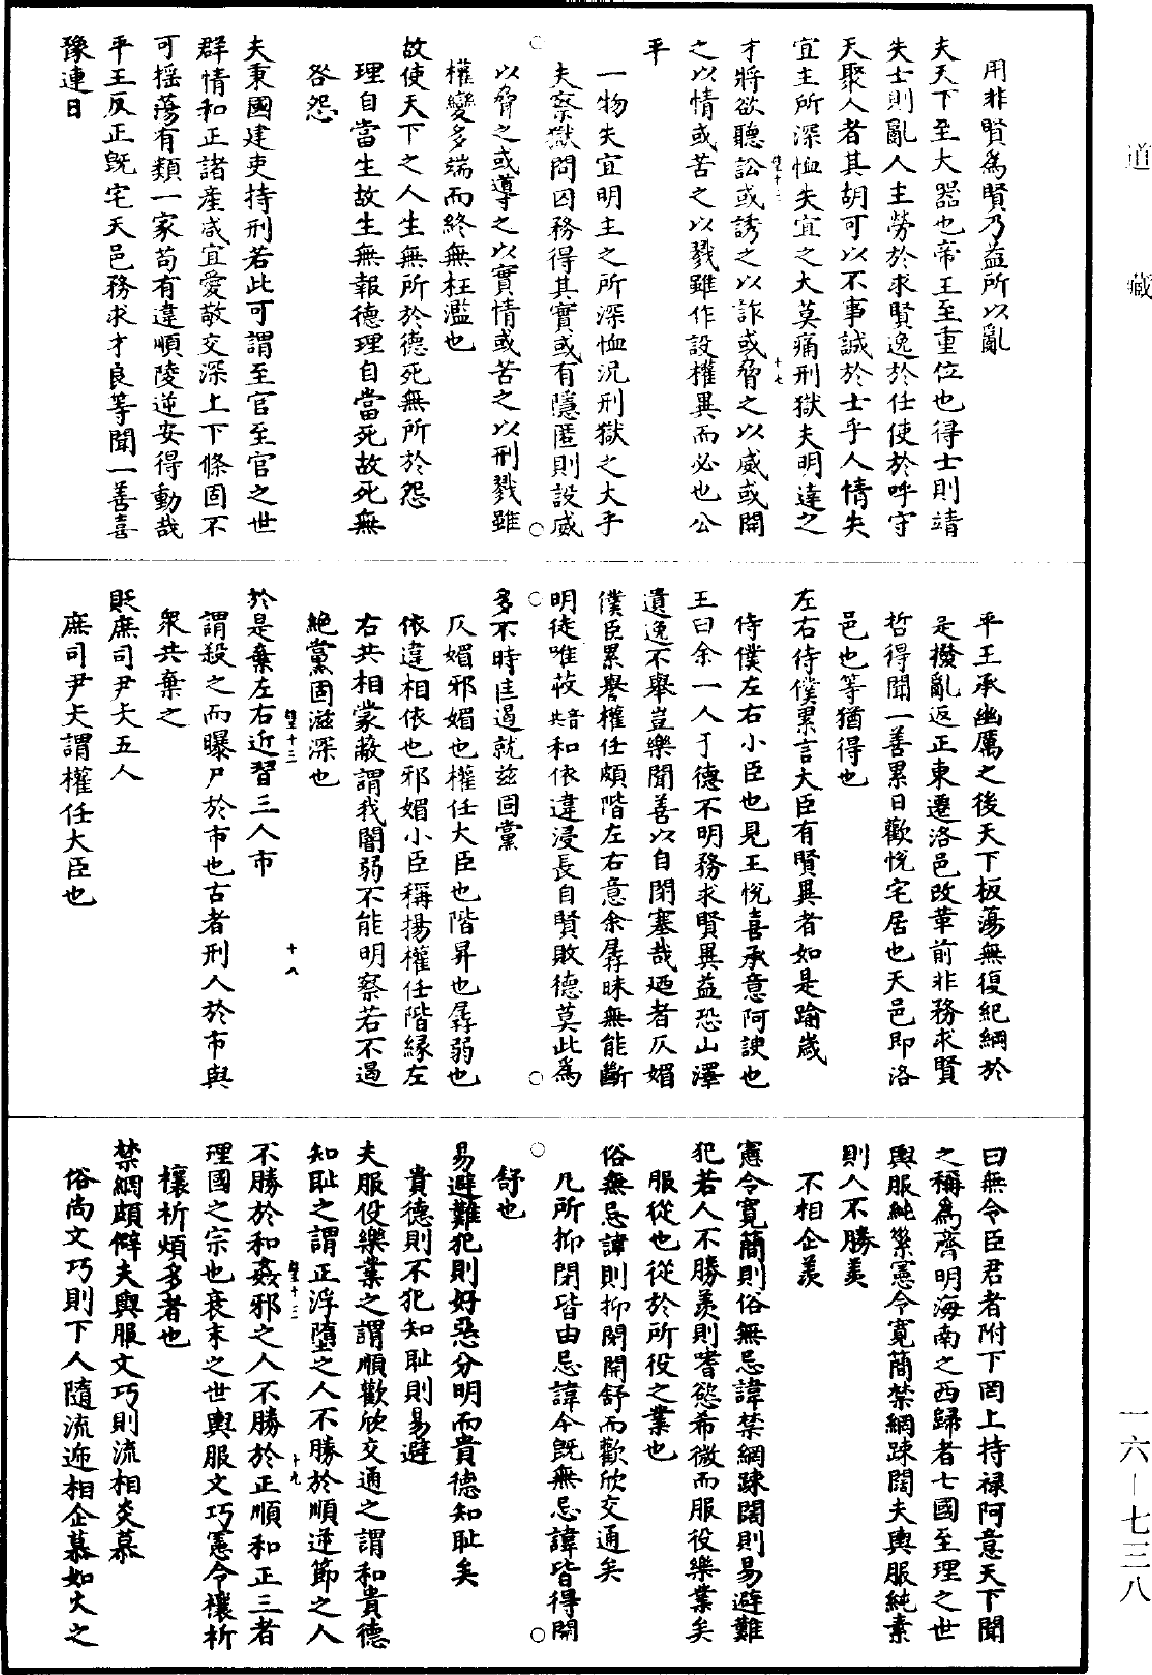 道藏
用非賢爲賢乃益所以亂
夫天下至大器也帝王至重位也得士則靖
失士則亂人主勞於求賢逸於任使於呼守
天聚人者其胡可以不事誠於士乎人情失
宜主所深恤失宜之大莫痛刑獄夫明達之
才將欲聽訟或誘之以詐或脅之以威或開
之以情或苦之以戮雖作設權異而必也公
平
一物失宜明主之所深恤況刑獄之大乎
夫察獄問囚務得其實或有隱匿則設威
以脅之或導之以實情或苦之以刑戮雖
權變多端而終無枉濫也
故使天下之人生無所於德死無所於怨
理自當生故生無報德理自當死故死無
咎怨
夫秉國建吏持刑若此可謂至官至官之世
群情和正諸產咸宜愛敬交深上下條固不
可搖蕩有類一家苟有違順陵逆安得動哉
平王反正既宅天邑務求才良等聞一善喜
豫連日
平王承幽厲之後天下板蕩無復紀綱於
是撥亂返正東遷洛邑改革前非務求賢
哲得聞一善累日歡悅宅居也天邑即洛
邑也等猶得也
左右侍僕累言大臣有賢異者如是踰歲
侍僕左右小臣也見王悅喜承意阿諛也
王曰余一人于德不明務求賢異益恐山澤
遺逸不舉豈樂聞善以自閉塞哉廼者仄媚
僕臣累譽權任頗階左右意余孱昧無能斷
明徒唯荍音共和依違浸長自賢敗德莫此爲
多不時匡遏就茲固黨
仄媚邪媚也權任大臣也階昇也孱弱也
依違相依也邪媚小臣稱揚權任階緣左
右共相蒙蔽謂我闇弱不能明察若不遏
絕黨固滋深也
於是棄左右近習三人市
謂殺之而曝尸於市也古者刑人於市與
衆共棄之
貶庶司尹夫五人
庶司尹夫謂權任大臣也
曰無令臣君者附下罔上持祿阿意天下聞
之稱爲齊明海南之西歸者七國至理之世
輿服純素憲令寬簡禁網踈闊夫輿服純素
則人不勝羨
不相企羨
憲令寬簡則俗無忌諱禁網踈闊則易避難
犯若人不勝羨則嗜慾希微而服役樂業矣
服從也從於所役之業也
俗無忌諱則抑閉開舒而歡欣交通矣
凡所抑閉皆由忌諱今既無忌諱皆得開
舒也
易避難犯則好惡分明而貴德知恥矣
貴德則不犯知恥則易避
夫服役樂業之謂順歡欣交通之謂和貴德
知恥之謂正浮墮之人不勝於順逆節之人
不勝於和姦邪之人不勝於正順和正三者
理國之宗也衰末之世輿服文巧憲令禳祈
禳祈煩多者也
禁網頗僻夫輿服文巧則流相炎慕
俗尚文巧則下人隨流遞相企慕如火之
一六—七三八